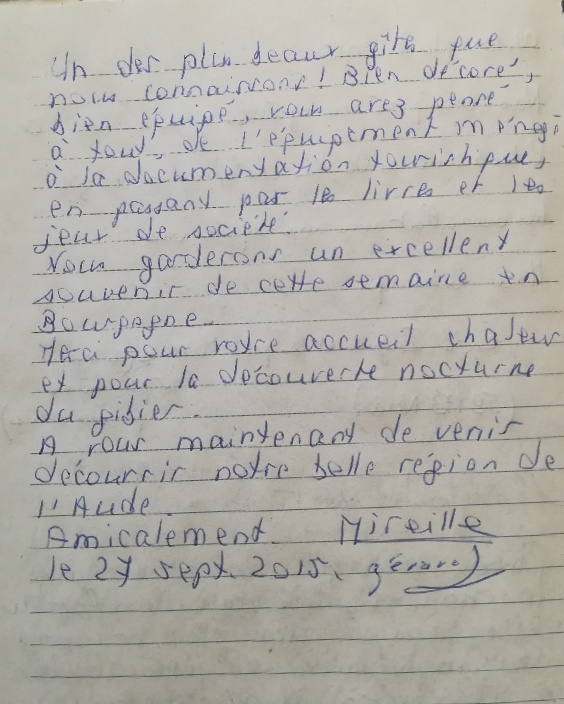 Un des plus beaux gîtes que
nous connaissons ! Bien décoré,
bien équipé, vous avez pensé
à tout, de l'équipement ménagé
à la documentation touristique,
en passant par les livres et les
jeux de société.
Nous garderons un excellent
souvenir de cette semaine en
Bourgogne.
Merci pour votre accueil chaleur
et pour la découverte nocturne
du gibier.
A vous maintenant de venir
découvrir notre belle région de
l'Aude.
Amicalement. Mireille
le 27 sept. 2015. gérard